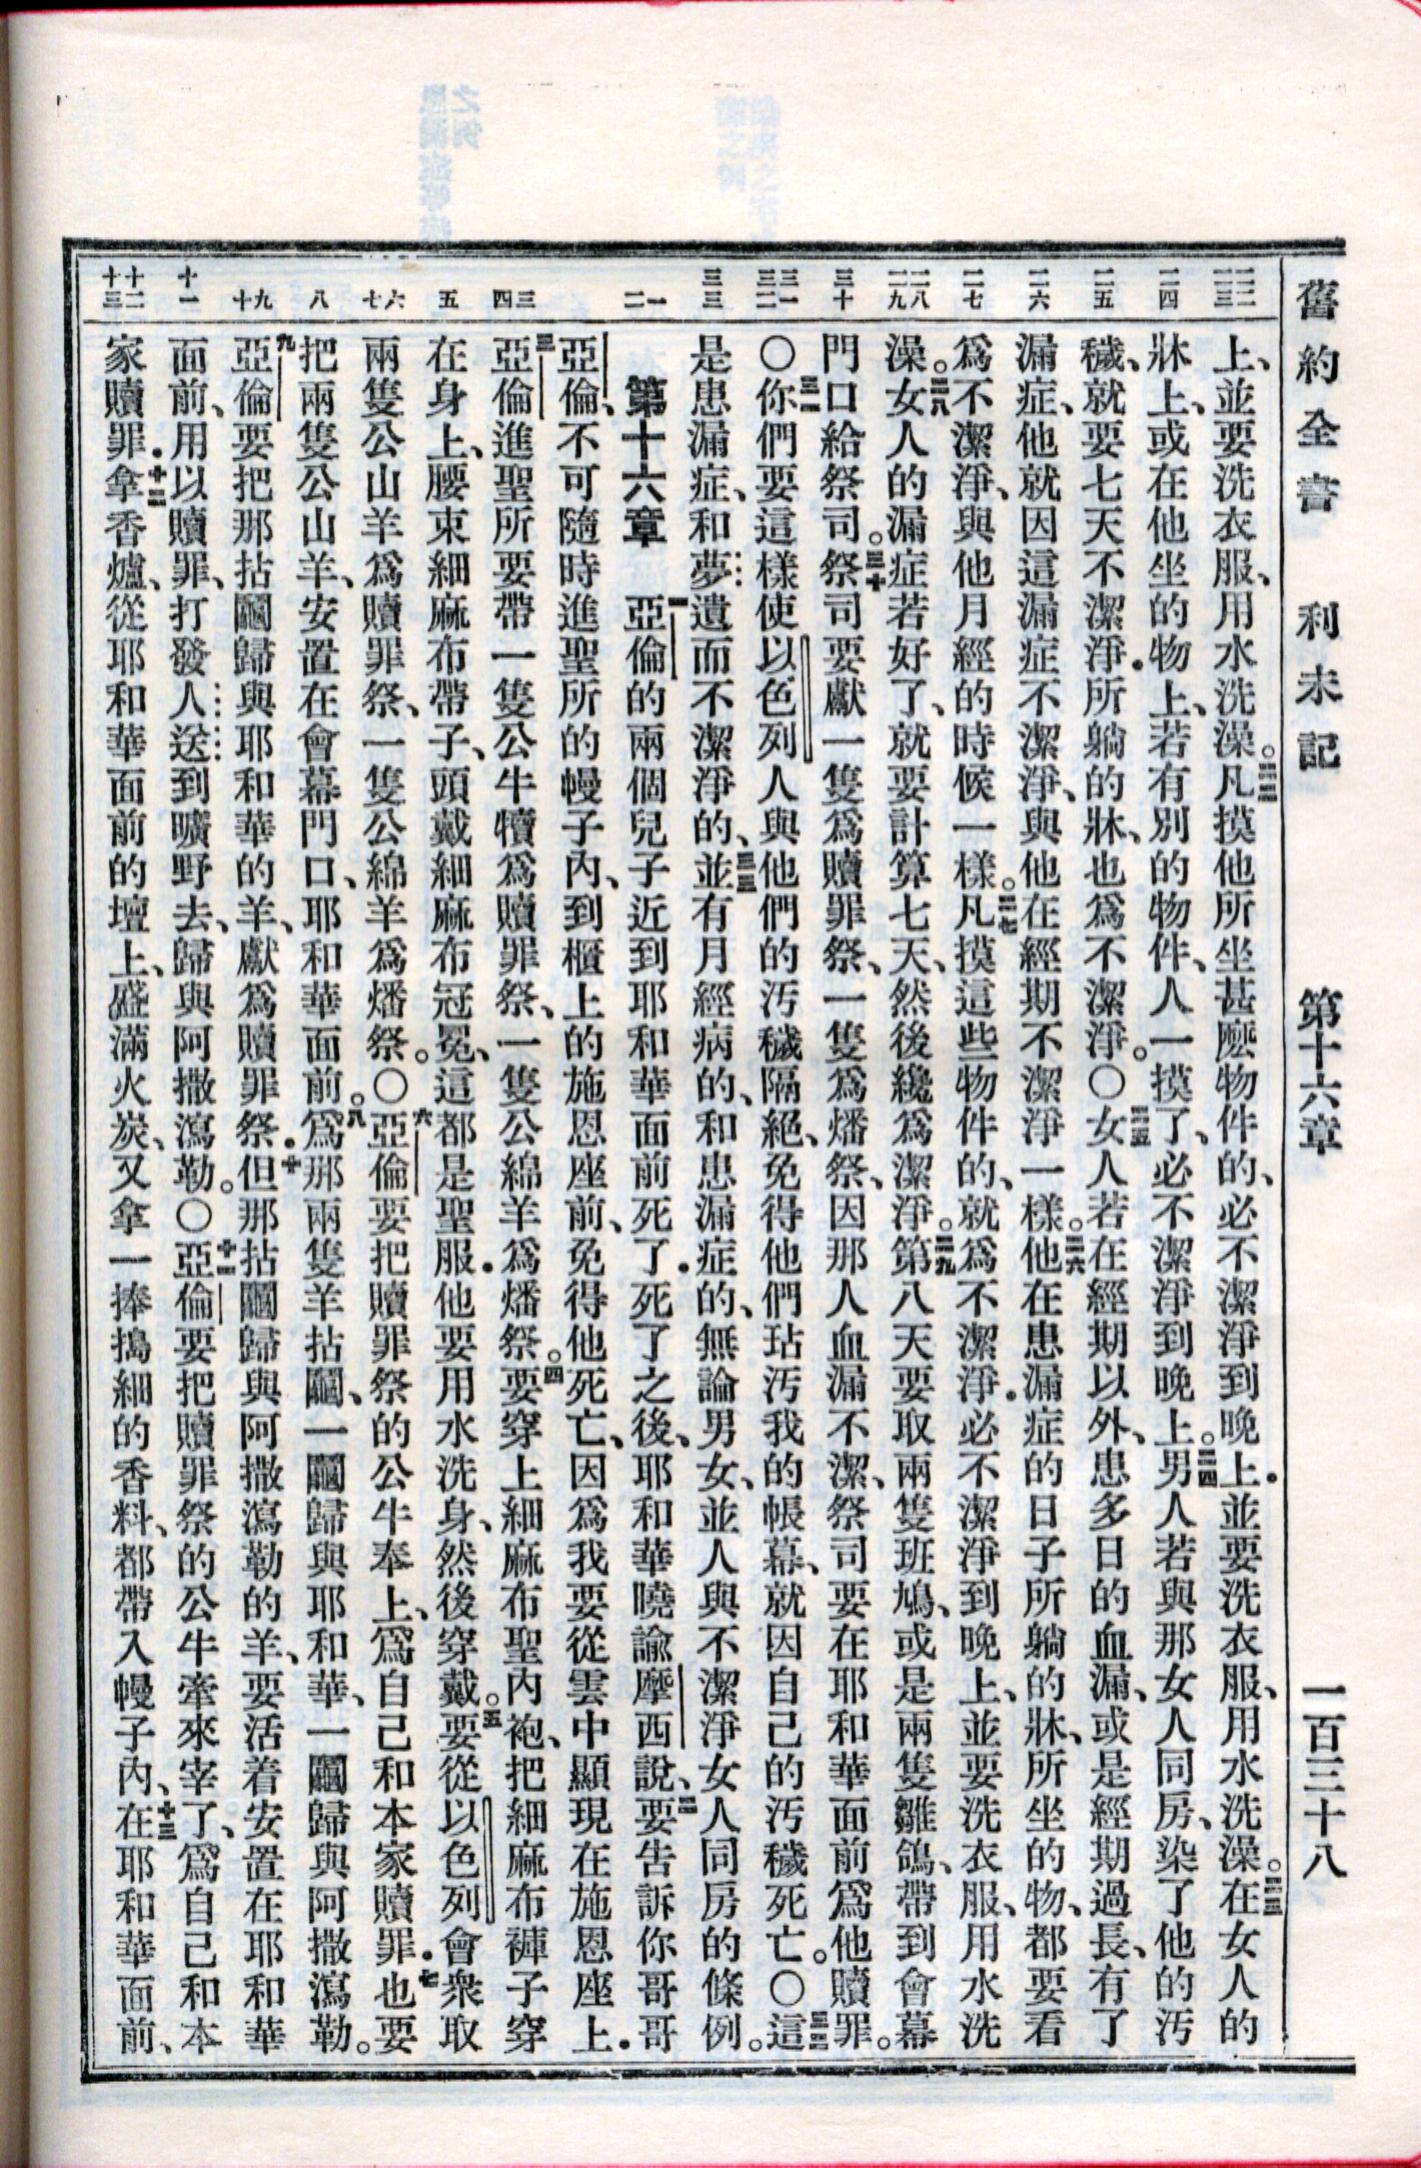 舊約全書 利未記 第十六章 一百三十八
二二 二三
二四
二五
二六
二七
二八 二九
三十
三一 三二
三三
一 二
三 四
五
六 七
八
九 十
十一
十二 十三
上、並要洗衣服、用水洗澡。二二凡摸他所坐甚麼物件的、必不潔淨到晚上．並要洗衣服、用水洗澡。二三在女人的
牀上、或在他坐的物上、若有別的物件、人一摸了、必不潔淨到晚上。二四男人若與那女人同房、染了他的汚
穢、就要七天不潔淨．所躺的牀、也爲不潔淨。○二五女人若在經期以外、患多日的血漏、或是經期過長、有了
漏症、他就因這漏症不潔淨、與他在經期不潔淨一樣。二六他在患漏症的日子所躺的牀、所坐的物、都要看
爲不潔淨、與他月經的時候一樣。二七凡摸這些物件的、就爲不潔淨．必不潔淨到晚上、並要洗衣服、用水洗
澡。二八女人的漏症若好了、就要計算七天、然後纔爲潔淨。二九第八天要取兩隻班鳩、或是兩隻雛鴿、帶到會幕
門口給祭司。三十祭司要獻一隻爲贖罪祭、一隻爲燔祭、因那人血漏不潔、祭司要在耶和華面前爲他贖罪。
○三一你們要這樣使以色列人與他們的汚穢隔絕、免得他們玷汚我的帳幕、就因自己的汚穢死亡。○三二這
是患漏症、和夢遺而不潔淨的、三三並有月經病的、和患漏症的、無論男女、並人與不潔淨女人同房的條例。
第十六章 一亞倫的兩個兒子近到耶和華面前死了．死了之後、耶和華曉諭摩西說、二要告訴你哥哥
亞倫、不可隨時進聖所的幔子內、到櫃上的施恩座前、免得他死亡、因爲我要從雲中顯現在施恩座上．
三亞倫進聖所要帶一隻公牛犢爲贖罪祭、一隻公綿羊爲燔祭。四要穿上細麻布聖內袍、把細麻布褲子穿
在身上、腰束細麻布帶子、頭戴細麻布冠冕、這都是聖服．他要用水洗身、然後穿戴。五要從以色列會衆取
兩隻公山羊爲贖罪祭、一隻公綿羊爲燔祭。○六亞倫要把贖罪祭的公牛奉上、爲自己和本家贖罪．七也要
把兩隻公山羊、安置在會幕門口、耶和華面前。八爲那兩隻羊拈鬮、一鬮歸與耶和華、一鬮歸與阿撒瀉勒。
九亞倫要把那拈鬮歸與耶和華的羊、獻爲贖罪祭．十但那拈鬮歸與阿撒瀉勒的羊、要活着安置在耶和華
面前、用以贖罪、打發人送到曠野去、歸與阿撒瀉勒。○十一亞倫要把贖罪祭的公牛牽來宰了、爲自己和本
家贖罪．十二拿香爐、從耶和華面前的壇上、盛滿火炭、又拿一捧搗細的香料、都帶入幔子內、十三在耶和華面前、